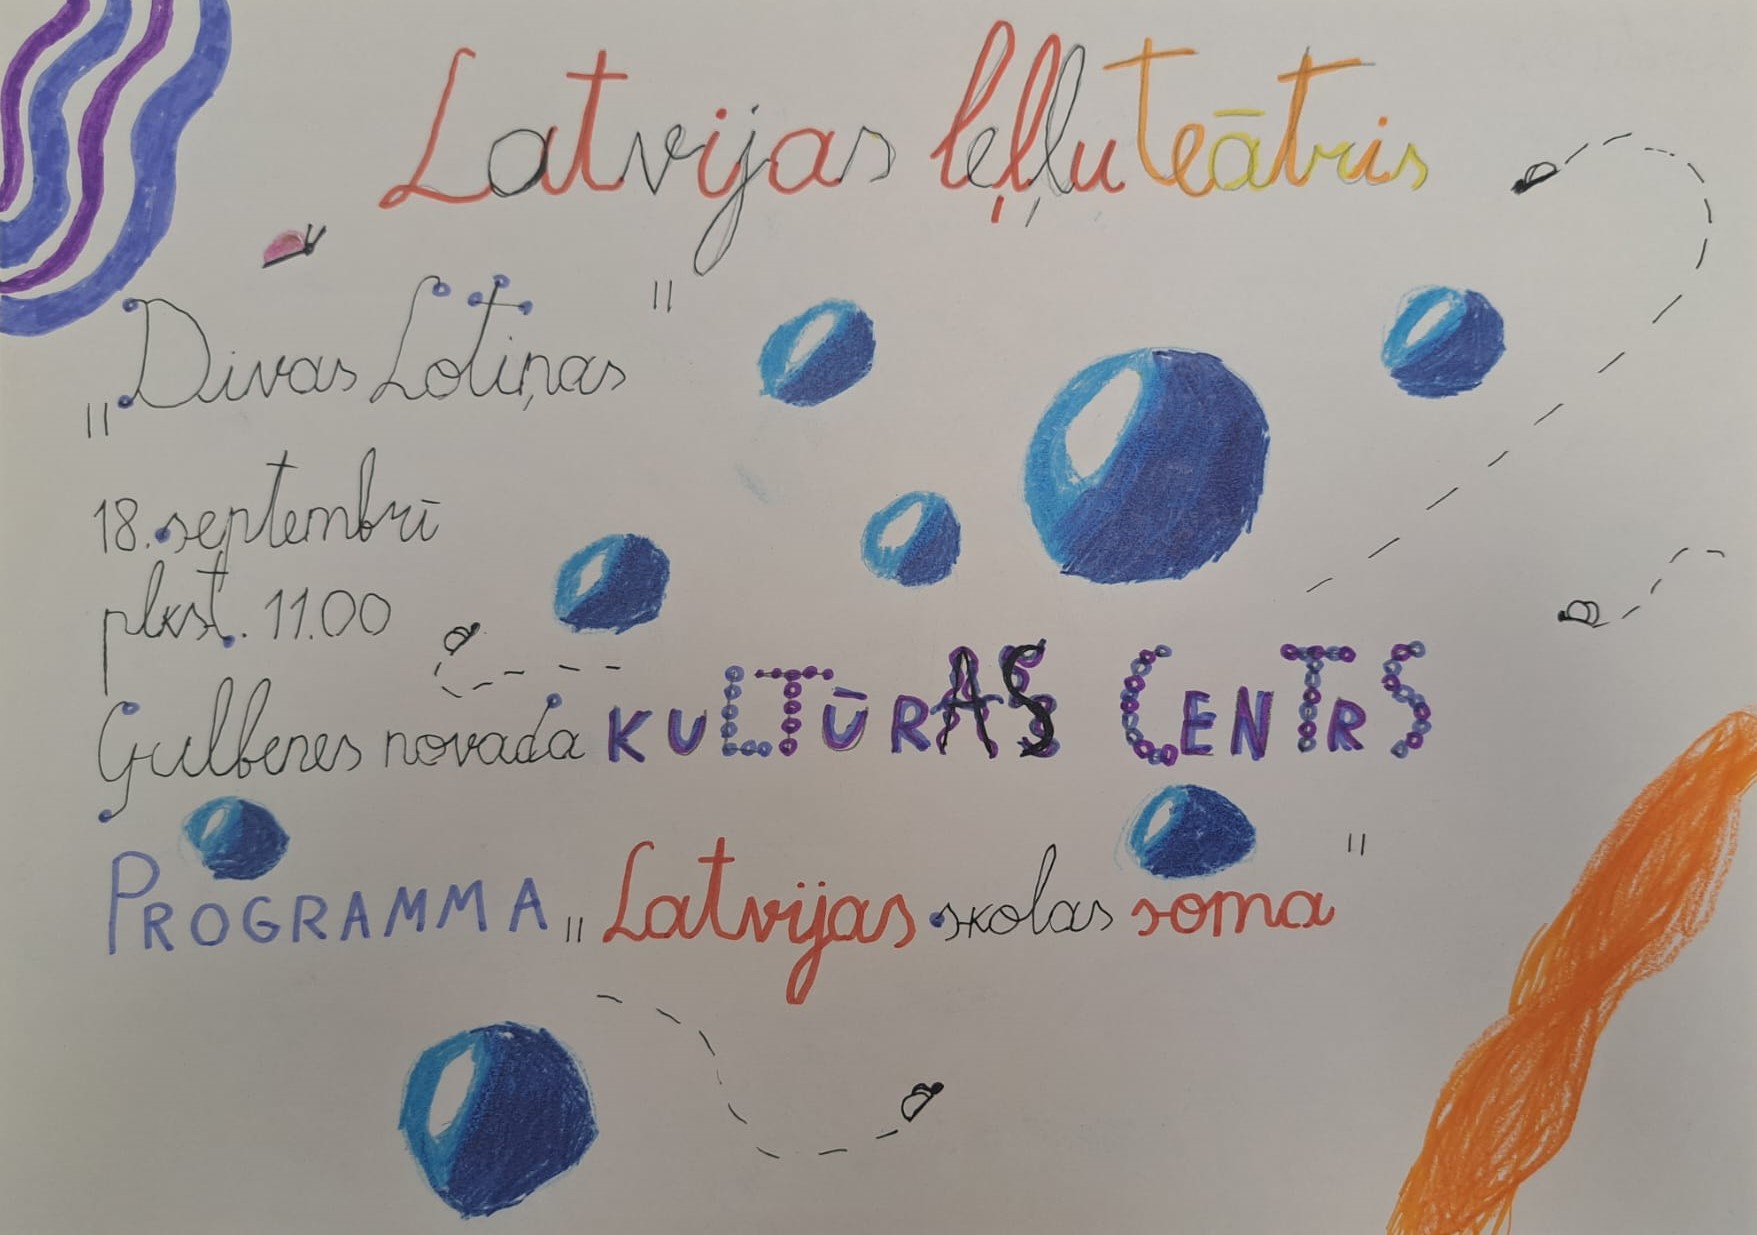 Latvijas leļļu teātris
„Divas Lotiņas"
18. septembrī
plkst. 11.00
Gulbenes novada KULTŪRAS CENTRS
PROGRAMMA „Latvijas skolas soma"